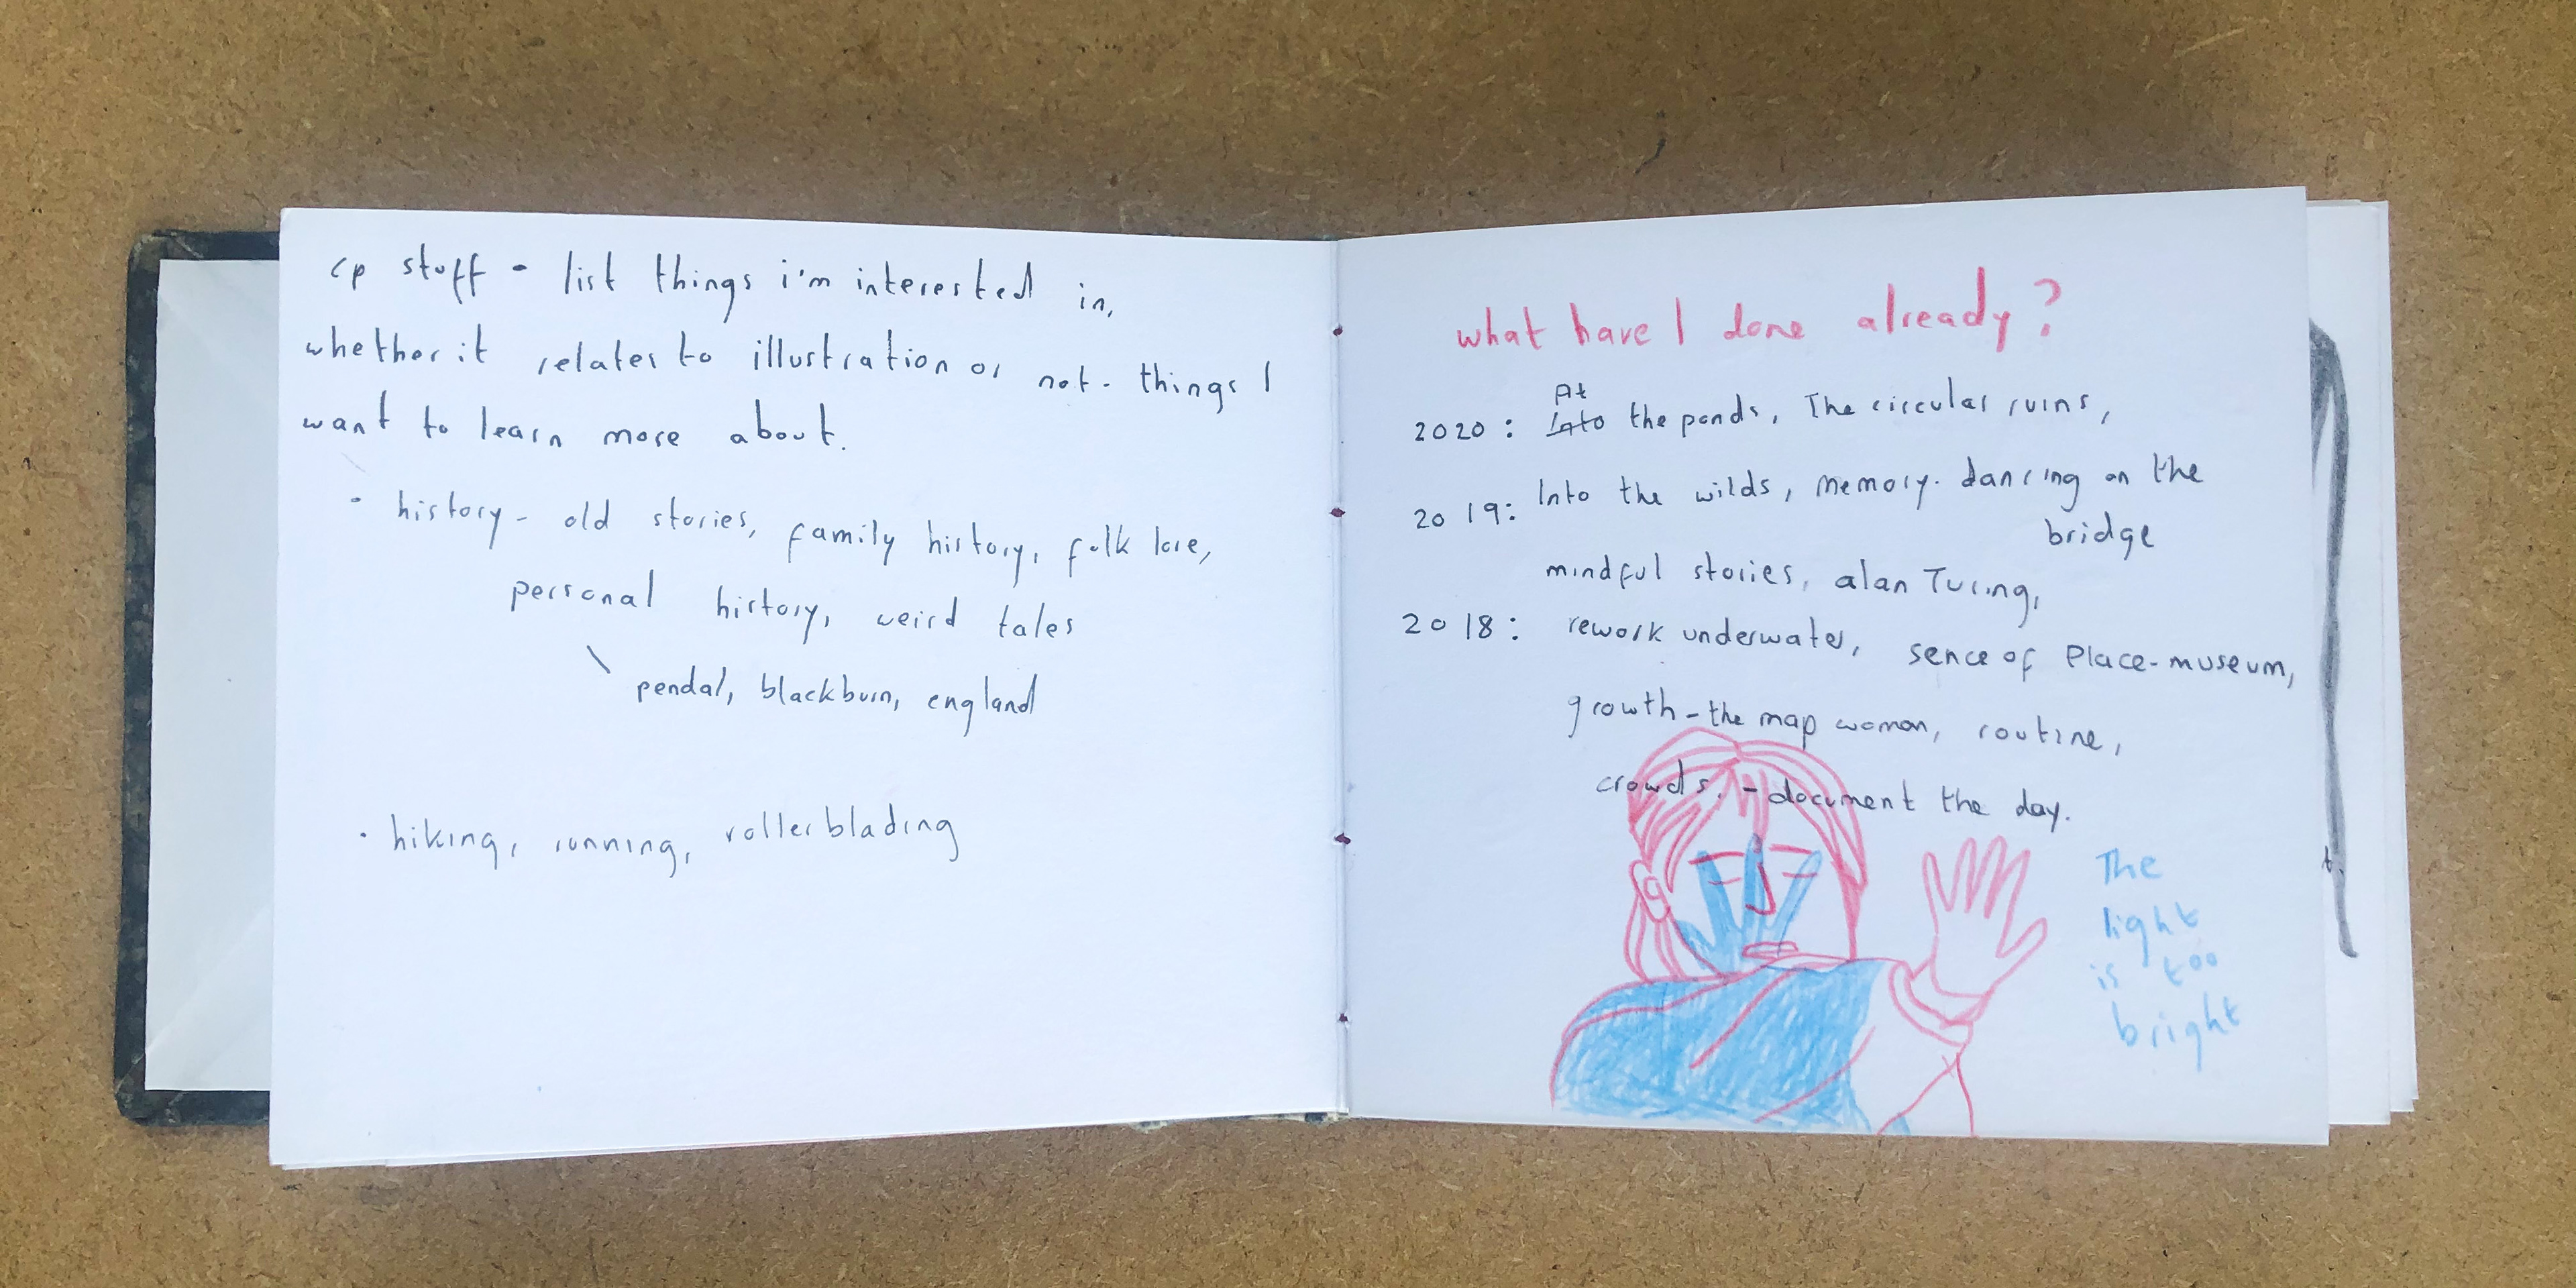 cp stuff - list things i'm interested in,
whether it relates to illustration or not - things I
want to learn more about.
· history - old stories, family history, folk lore,
personal history, weird tales
\ pendal, blackburn, england
· hiking, running, rollerblading
what have I done already?
At
2020: Into the ponds, The circular ruins,
2019: Into the wilds, memory. dancing on the
bridge
mindful stories, alan Turing,
2018: rework underwater, sence of Place-museum,
growth - the map woman, routine,
crowds. - document the day.
The
light
is too
bright